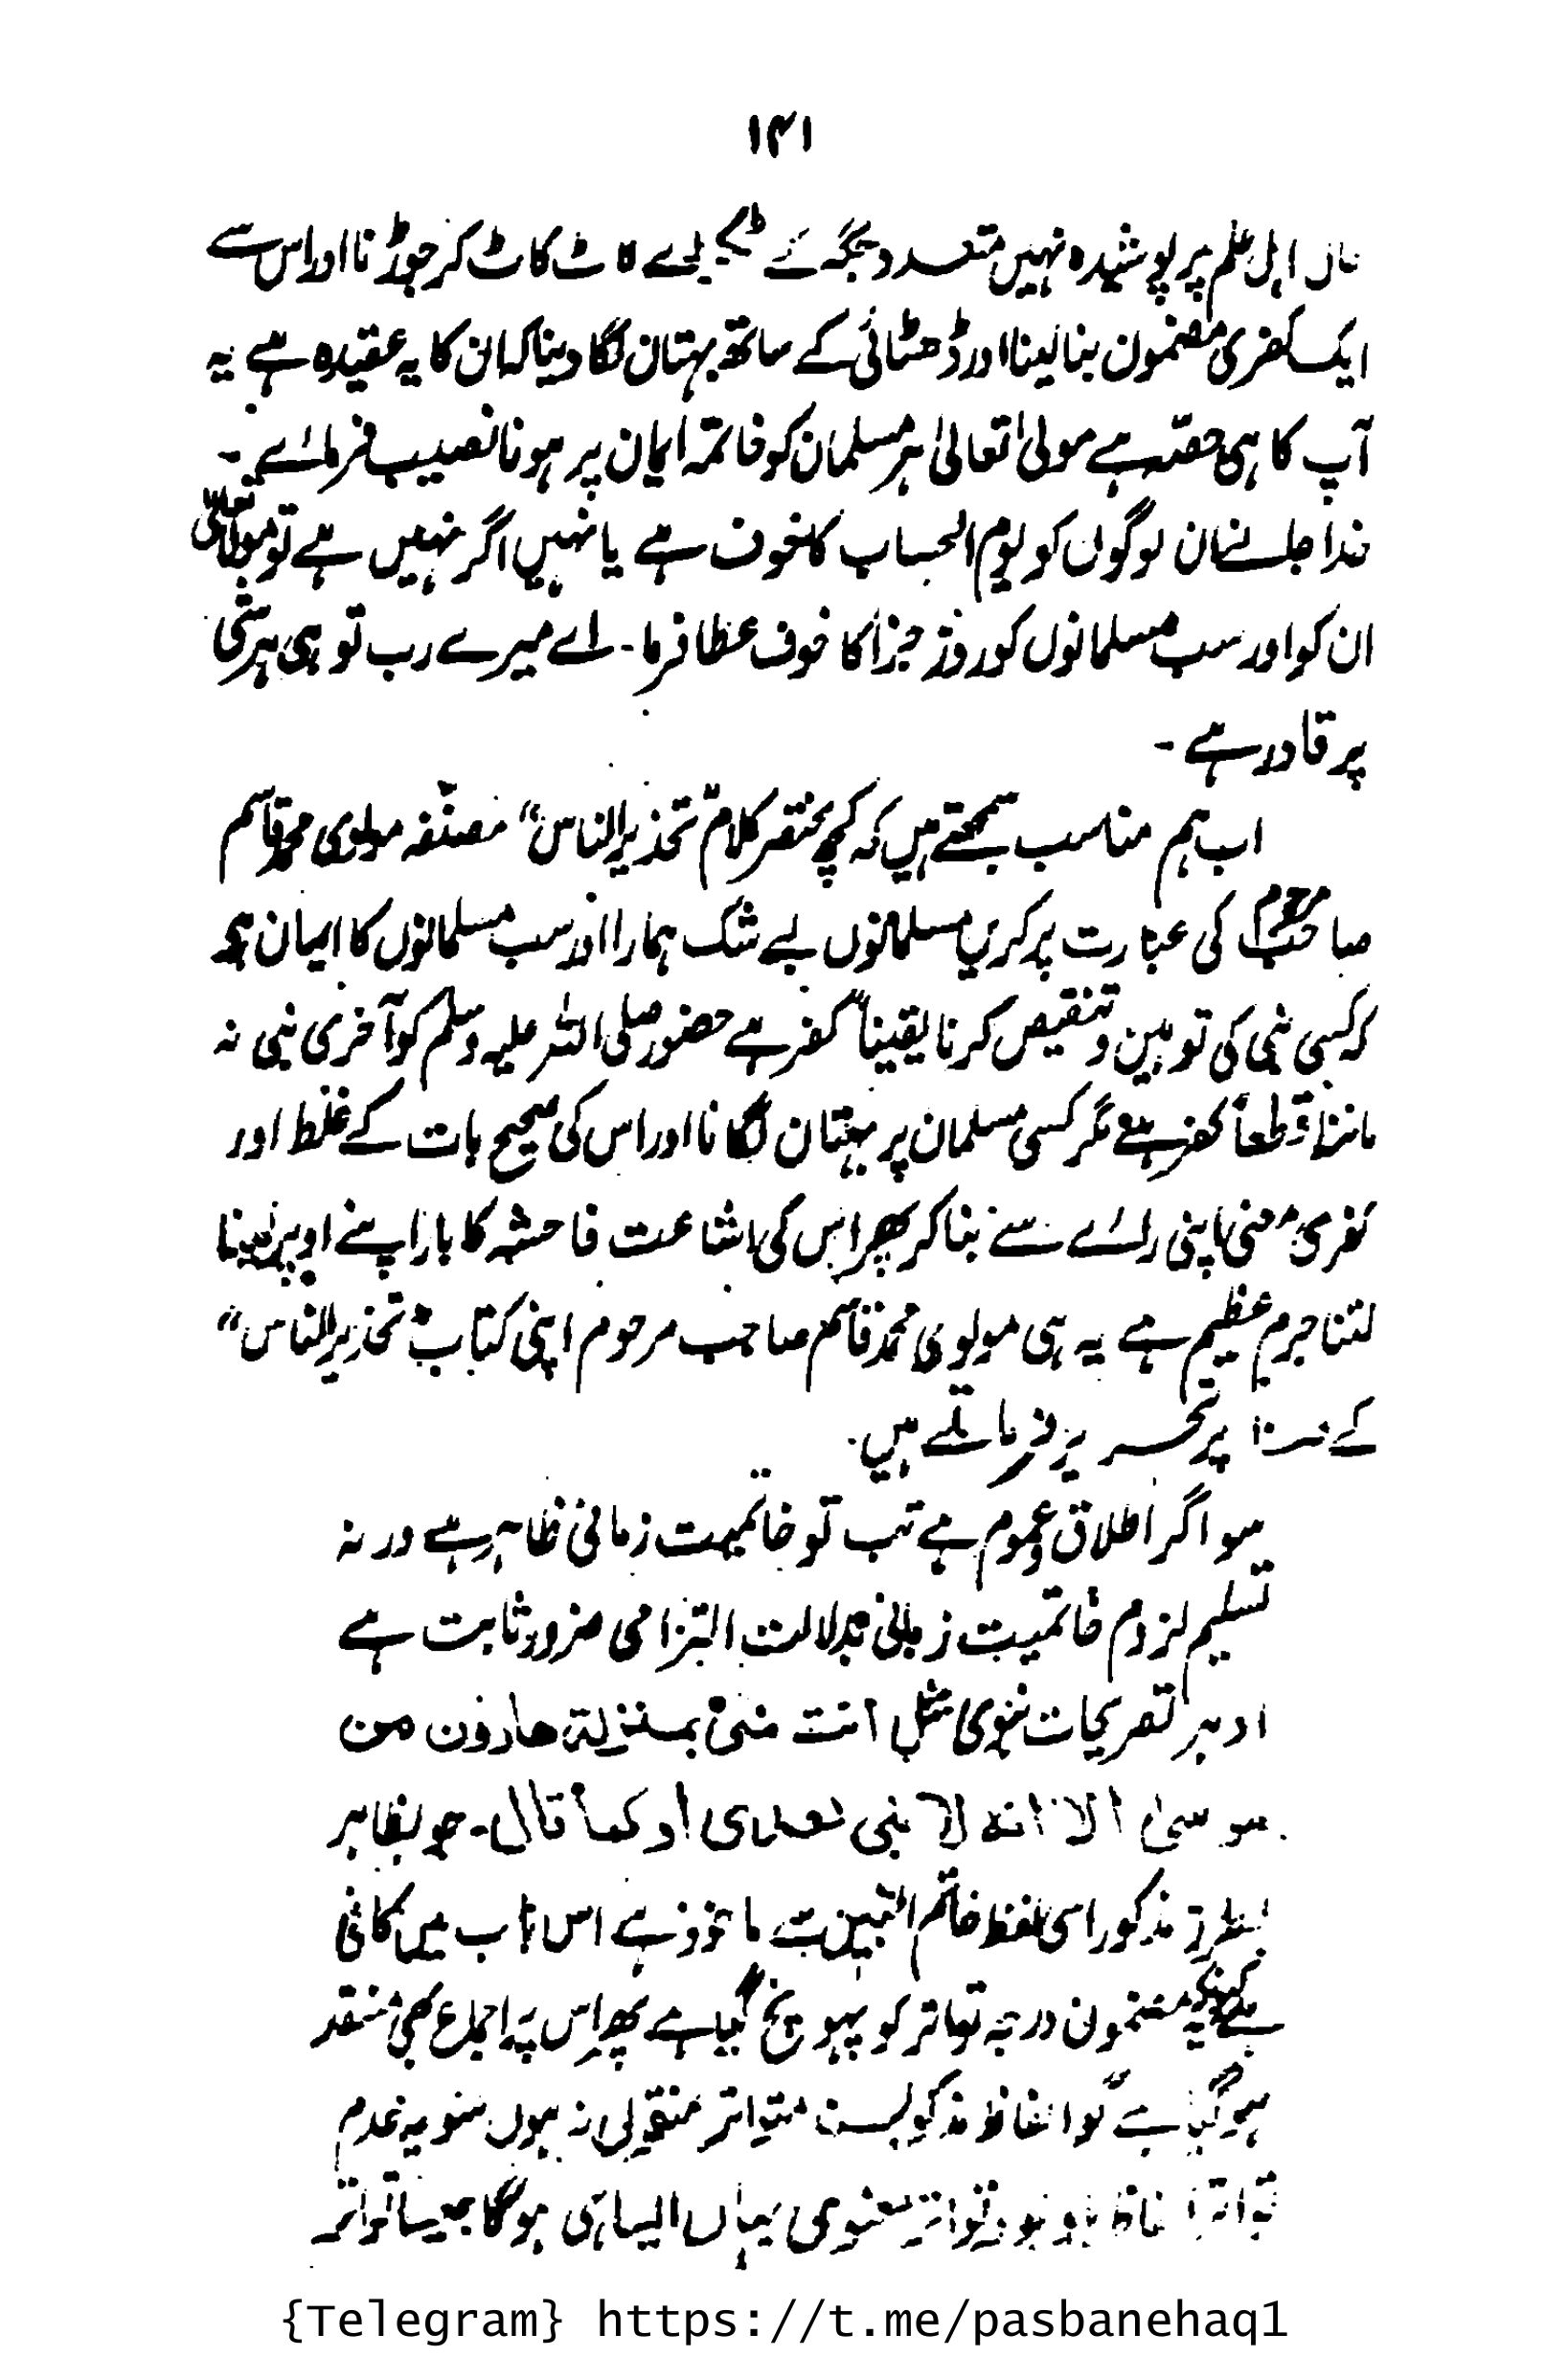 ۱۴۱
ہاں اہل علم پر پوشیدہ نہیں متعدد جگہ کے ٹکڑے کاٹ کاٹ کر جوڑنا اور اس سے
ایک کفری مضمون بنا لینا اور ڈھٹائی کے ساتھ بہتان لگا دینا کہ ان کا یہ عقیدہ ہے یہ
آپ کا ہی حصّہ ہے مولیٰ تعالیٰ ہر مسلمان کو خاتمہ ایمان پر ہونا نصیب فرمائے۔
خدا جانے ان لوگوں کو یوم الحساب کا خوف ہے یا نہیں اگر نہیں ہے تو مولیٰ تعالیٰ
ان کو اور سب مسلمانوں کو روز جزا کا خوف عطا فرما۔ اے میرے رب تو ہی ہر شئی
پر قادر ہے۔
اب ہم مناسب سمجھتے ہیں کہ کچھ مختصر کلام "تحذیر الناس" مصنّفہ مولوی محمد قاسم
صاحب مرحوم کی عبارت پر کریں مسلمانوں بے شک ہمارا اور سب مسلمانوں کا ایمان ہے
کہ کسی نبی کی توہین و تنقیص کرنا یقیناً کفر ہے حضور صلی اللہ علیہ وسلم کو آخری نبی نہ
ماننا قطعاً کفر ہے مگر کسی مسلمان پر بہتان لگانا اور اس کی صحیح بات کے غلط اور
کفری معنی اپنی رائے سے بنا کر پھر اس کی اشاعت فاحشہ کا بار اپنے اوپر لینا
کتنا جرم عظیم ہے یہ ہی مولوی محمد قاسم صاحب مرحوم اپنی کتاب "تحذیر الناس"
کے پر تحریر فرماتے ہیں۔
سو اگر اطلاق و عموم ہے تب تو خاتمیت زمانی ظاہر ہے ورنہ
تسلیم لزوم خاتمیت زمانی بدلالت التزامی ضرور ثابت ہے
ادہر تصریحات نبوی مثل انت منی بمنزلۃ ھارون من
موسیٰ الا انه لا نبی بعدی او کما قال۔ جو بظاہر
بطرز مذکور اسی لفظ خاتم النبیین سے ماخوذ ہے اس باب میں کافی
ہے کیونکہ یہ مضمون درجہ تواتر کو پہونچ گیا ہے پھر اس پہ اجماع بھی منعقد
ہو گیا ہے گو الفاظ مذکور بسند متواتر منقول نہ ہوں سو یہ عدم
تواتر الفاظ باوجود تواتر معنوی یہاں ایسا ہی ہوگا جیسا تواتر
{Telegram} https://t.me/pasbanehaq1